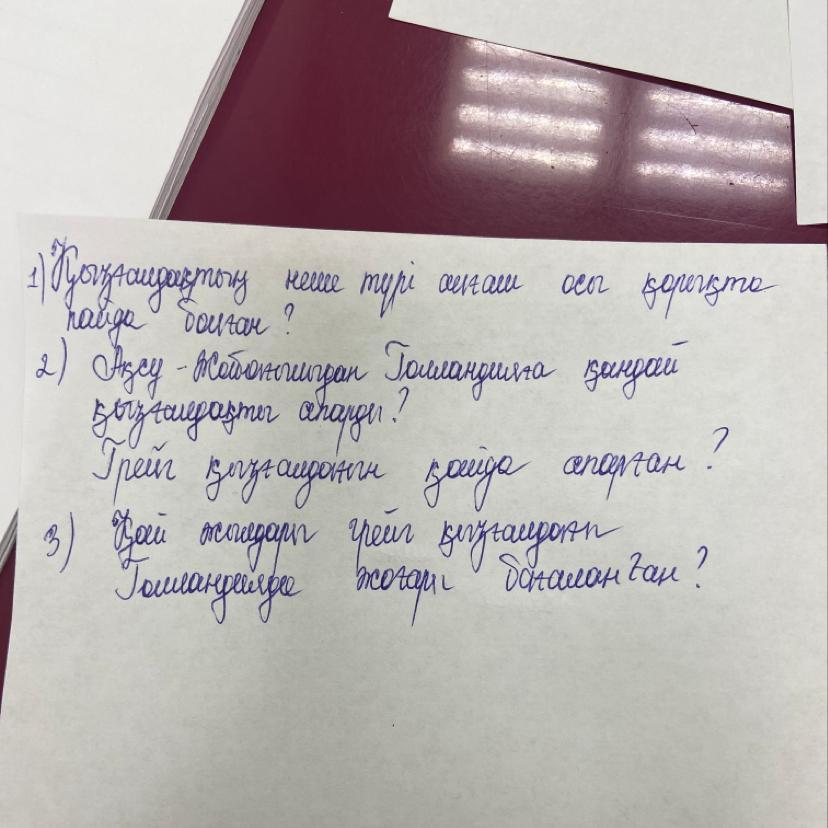 1) Қызғалдақтың неше түрі алғаш осы қорықта
пайда болған?
2) Ақсу - Жабағылыдан Голландияға қандай
қызғалдақты апарды?
Грейг қызғалдағын қайда апарған?
3) Қай жылдары грейг қызғалдағы
Голландияда жоғары бағаланған?